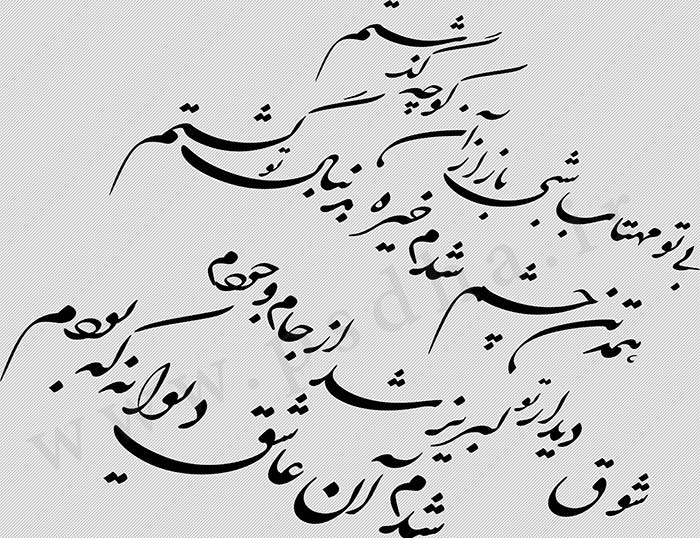 بی تو مهتاب شبی باز از آن کوچه گذشتم
همه تن چشم شدم خیره به دنبال تو گشتم
شوق دیدار تو لبریز شد از جام وجودم
شدم آن عاشق دیوانه که بودم
www.psdha.ir